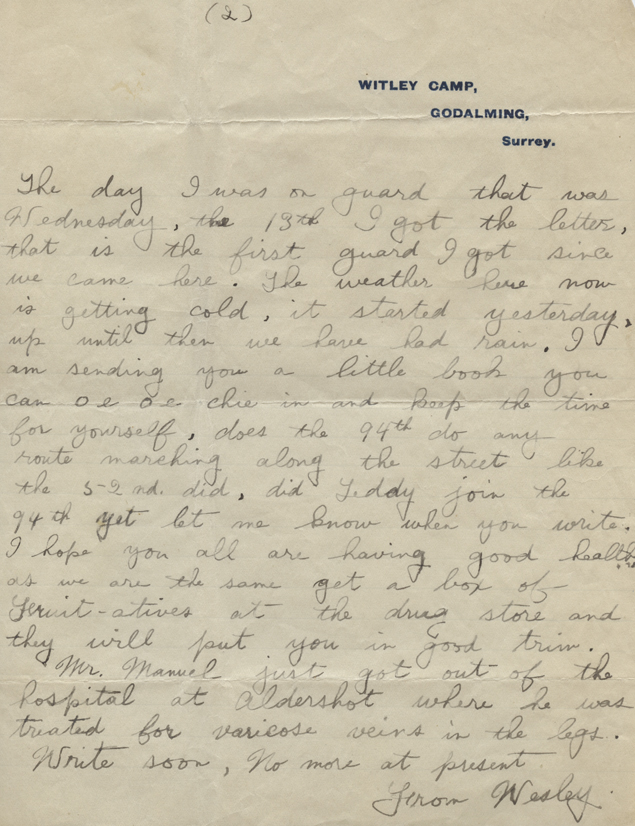 (2)
WITLEY CAMP,
GODALMING,
Surrey.
The day I was on guard that was
Wednesday, the 13th I got the letter,
that is the first guard I got since
we came here. The weather here now
is getting cold, it started yesterday,
up until then we have had rain. I
am sending you a little book you
can oe oe chie in and keep the time
for yourself, does the 94th do any
route marching along the street like
the 52nd. did, did Teddy join the
94th yet let me know when you write.
I hope you all are having good health
as we are the same get a box of
Fruit-atives at the drug store and
they will put you in good trim.
Mr. Manuel just got out of the
hospital at Aldershot where he was
treated for varicose veins in the legs.
Write soon, No more at present
From Wesley.